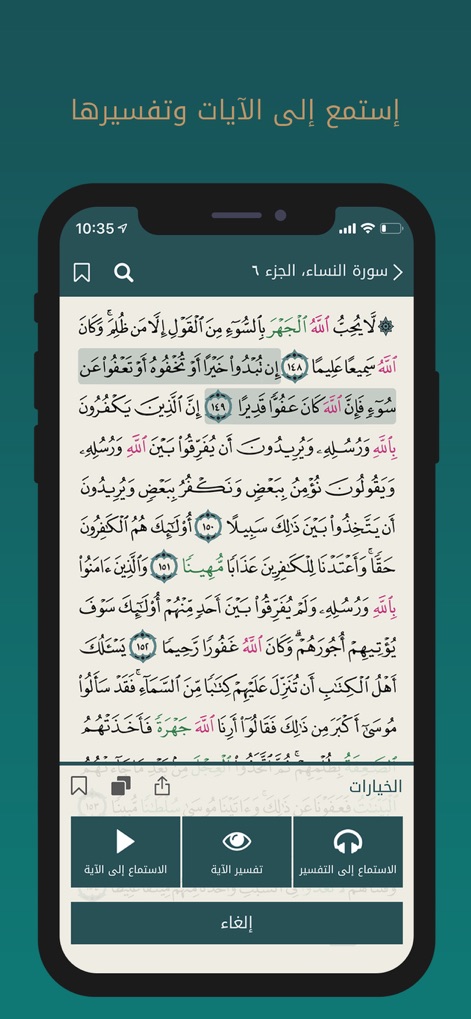 إستمع إلى الآيات وتفسيرها
10:35
سورة النساء، الجزء ٦
لَّا يُحِبُّ ٱللَّهُ ٱلْجَهْرَ بِٱلسُّوٓءِ مِنَ ٱلْقَوْلِ إِلَّا مَن ظُلِمَ ۚ وَكَانَ
ٱللَّهُ سَمِيعًا عَلِيمًا ١٤٨ إِن تُبْدُوا۟ خَيْرًا أَوْ تُخْفُوهُ أَوْ تَعْفُوا۟ عَن
سُوٓءٍ فَإِنَّ ٱللَّهَ كَانَ عَفُوًّا قَدِيرًا ١٤٩ إِنَّ ٱلَّذِينَ يَكْفُرُونَ
بِٱللَّهِ وَرُسُلِهِۦ وَيُرِيدُونَ أَن يُفَرِّقُوا۟ بَيْنَ ٱللَّهِ وَرُسُلِهِۦ
وَيَقُولُونَ نُؤْمِنُ بِبَعْضٍ وَنَكْفُرُ بِبَعْضٍ وَيُرِيدُونَ
أَن يَتَّخِذُوا۟ بَيْنَ ذَٰلِكَ سَبِيلًا ١٥٠ أُو۟لَـٰٓئِكَ هُمُ ٱلْكَـٰفِرُونَ
حَقًّا ۚ وَأَعْتَدْنَا لِلْكَـٰفِرِينَ عَذَابًا مُّهِينًا ١٥١ وَٱلَّذِينَ ءَامَنُوا۟
بِٱللَّهِ وَرُسُلِهِۦ وَلَمْ يُفَرِّقُوا۟ بَيْنَ أَحَدٍ مِّنْهُمْ أُو۟لَـٰٓئِكَ سَوْفَ
يُؤْتِيهِمْ أُجُورَهُمْ ۗ وَكَانَ ٱللَّهُ غَفُورًا رَّحِيمًا ١٥٢ يَسْـَٔلُكَ
أَهْلُ ٱلْكِتَـٰبِ أَن تُنَزِّلَ عَلَيْهِمْ كِتَـٰبًا مِّنَ ٱلسَّمَآءِ ۚ فَقَدْ سَأَلُوا۟
مُوسَىٰٓ أَكْبَرَ مِن ذَٰلِكَ فَقَالُوٓا۟ أَرِنَا ٱللَّهَ جَهْرَةً فَأَخَذَتْهُمُ
الخيارات
الاستماع إلى التفسير
تفسير الآية
الاستماع إلى الآية
إلغاء